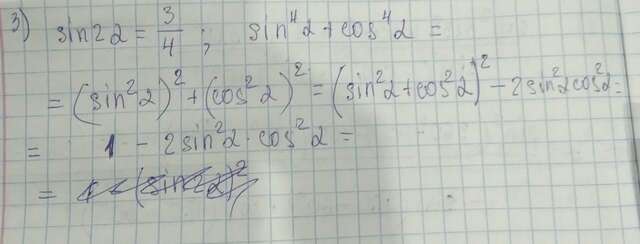 3) sin2α = 3/4 ; sin⁴α + cos⁴α =
= (sin²α)² + (cos²α)² = (sin²α + cos²α)² - 2sin²αcos²α =
= 1 - 2sin²α · cos²α =
=